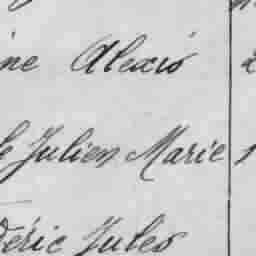 ne Alexis
Julien Marie
déric Jules